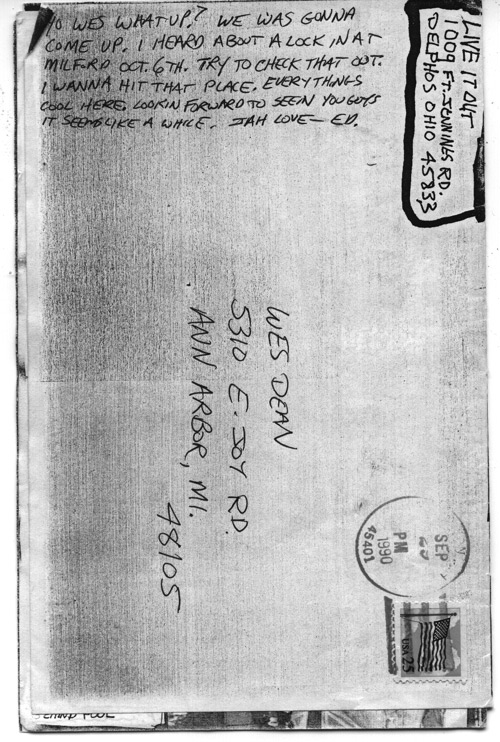 YO WES WHAT UP? WE WAS GONNA
COME UP. I HEARD ABOUT A LOCK IN AT
MILFRD OCT. 6TH. TRY TO CHECK THAT OUT.
I WANNA HIT THAT PLACE. EVERYTHINGS
COOL HERE, LOOKIN FORWARD TO SEEIN YOU GUYS
IT SEEMS LIKE A WHILE. JAH LOVE— ED.
LIVE IT OUT
1009 FT. JENNINGS RD.
DELPHOS OHIO 45833
WES DEAN
5310 E. JOY RD.
ANN ARBOR, MI.
48105
SEP
PM
1990
45401
USA 25